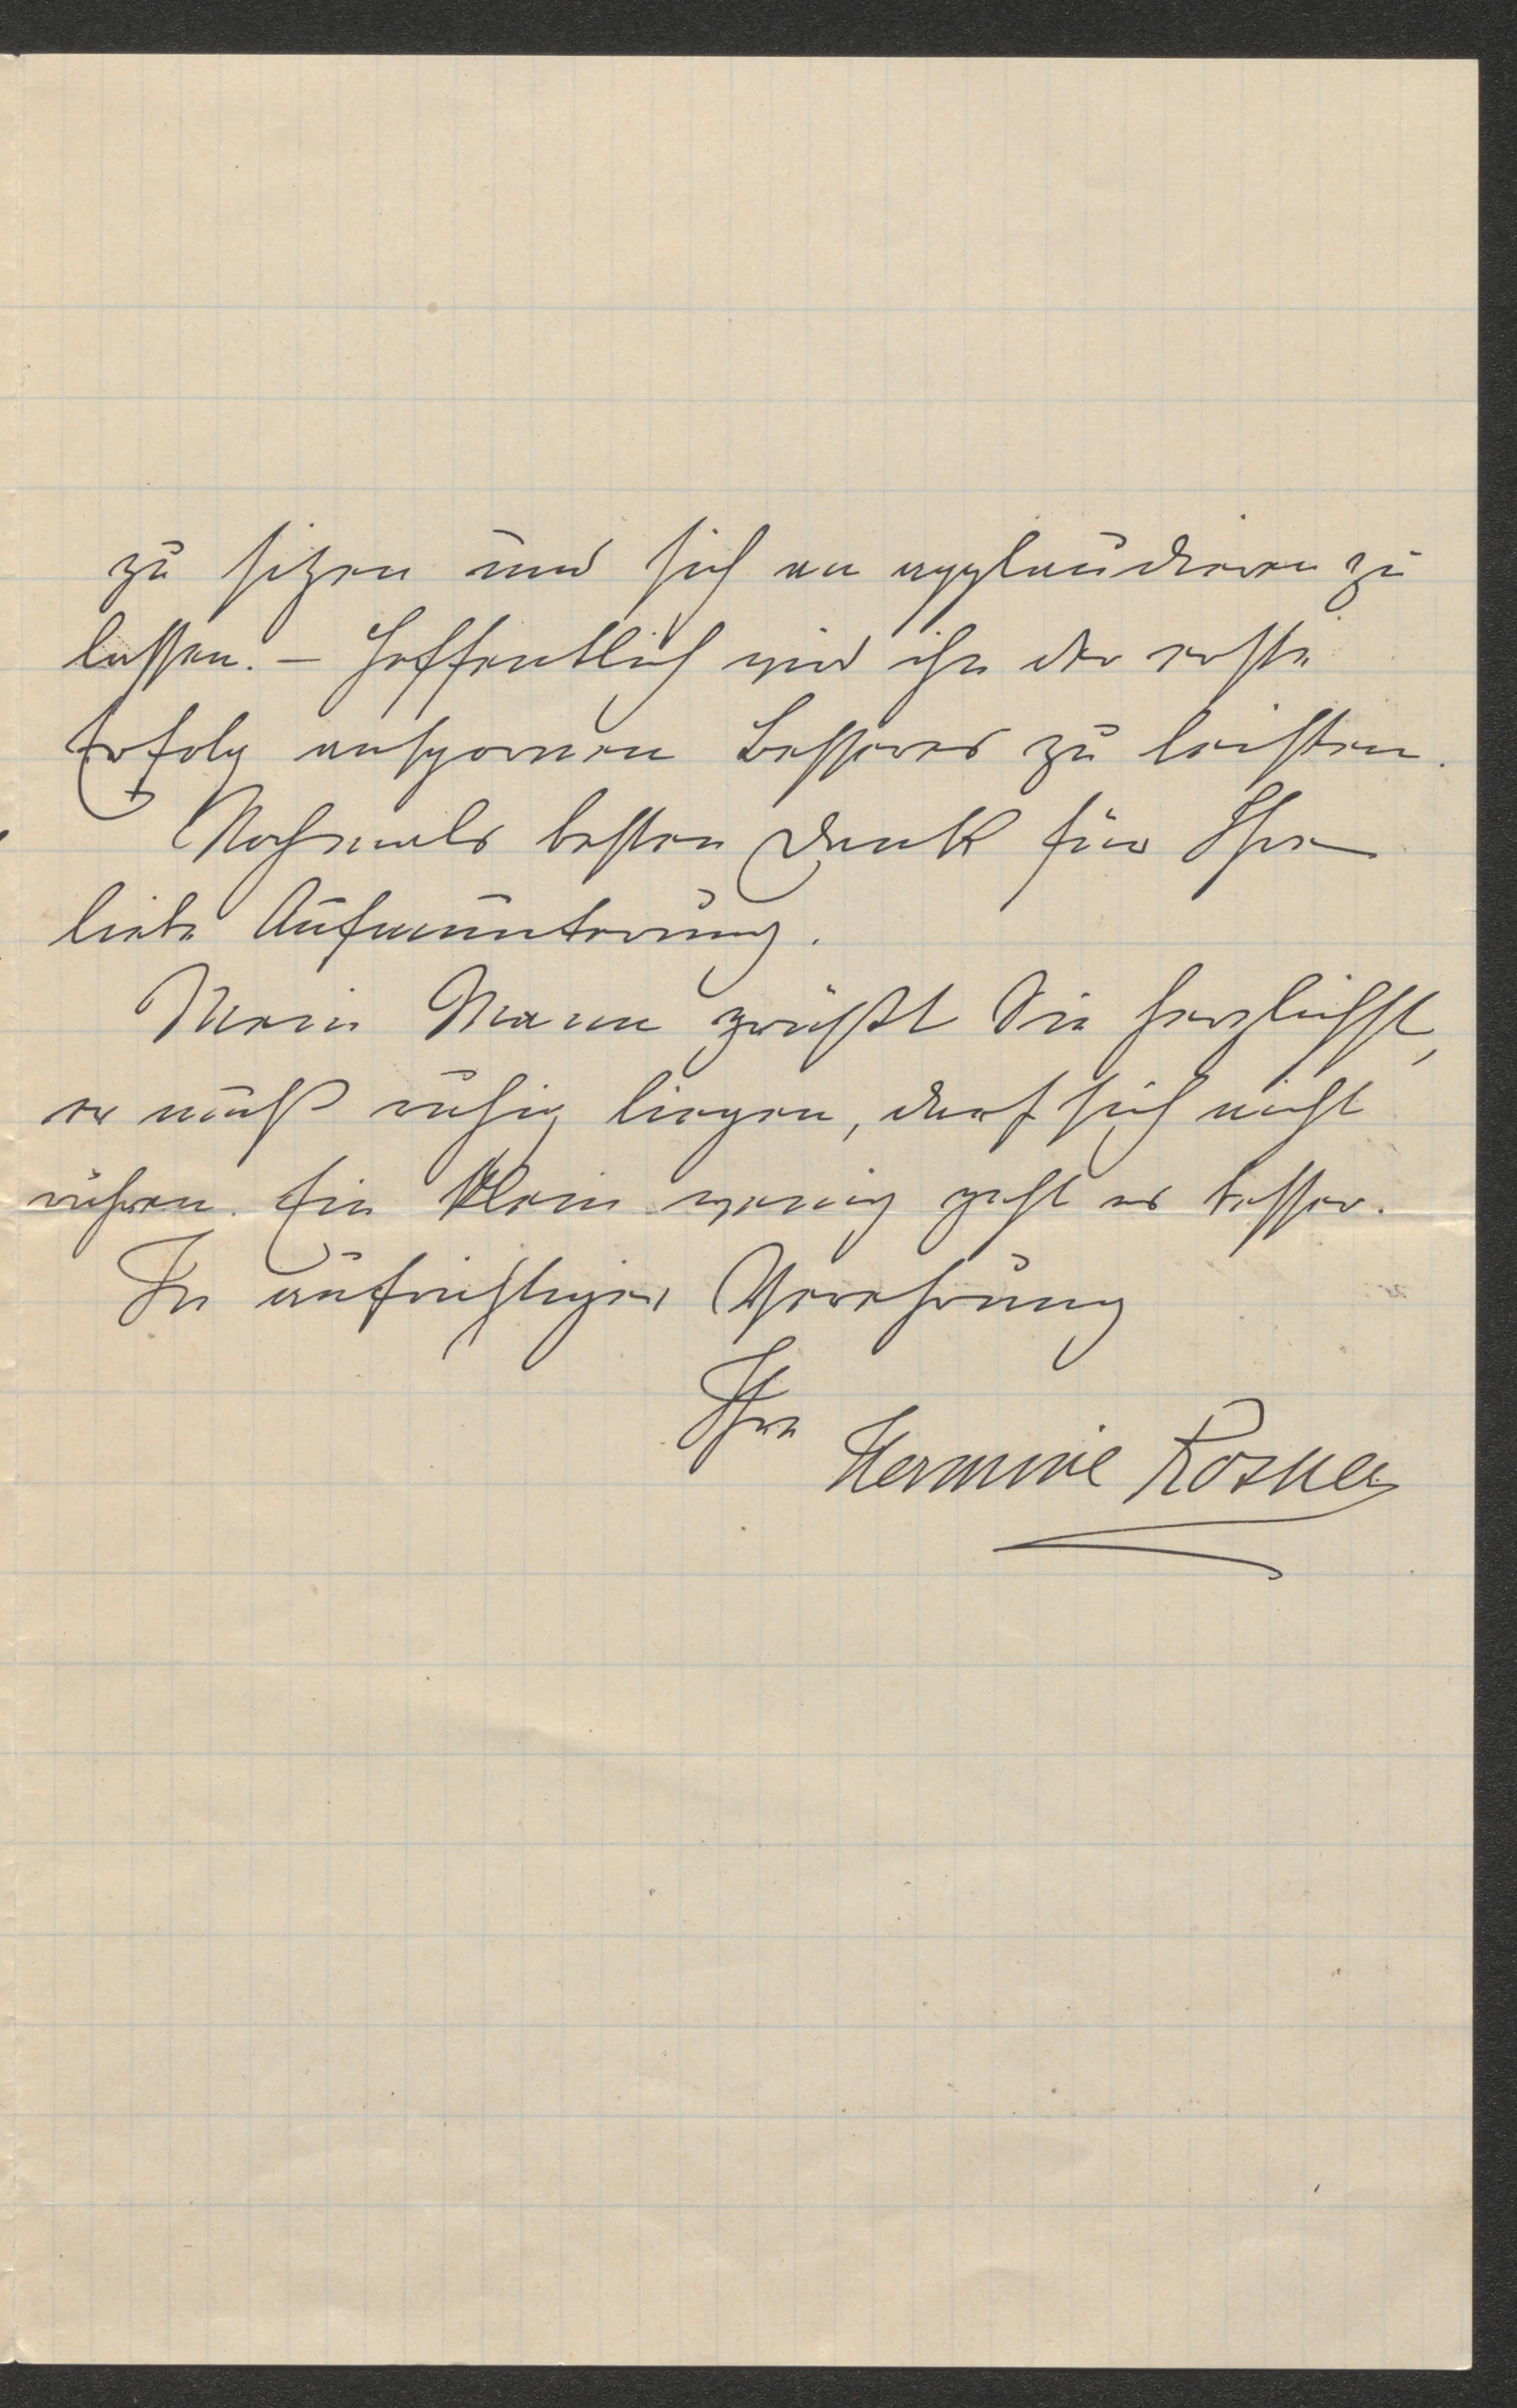 zu sitzen und sich an applaudieren zu
lassen. – Hoffentlich wird ihn der erste
Erfolg anspornen Besseres zu leisten.
Nochmals besten Dank für Ihre
liebe Aufmunterung.
Mein Mann grüßt Sie herzlichst,
er muß ruhig liegen, darf sich nicht
rühren. Ein klein wenig geht es besser.
In aufrichtiger Verehrung
Ihre
Hermine Rosner